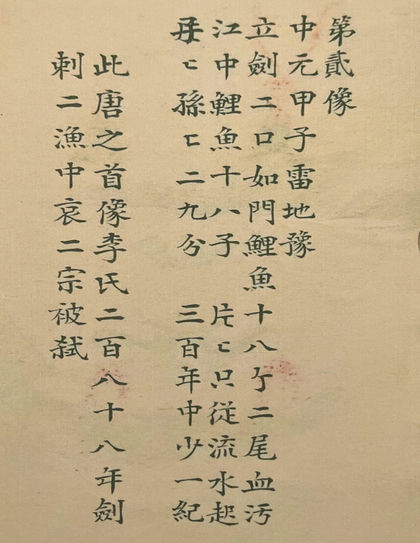 第貳像
中元甲子雷地豫
立劍二口如門鯉魚十八亇二尾血污
江中鯉魚十八子 片匕只從流水起
毋匕孫匕二九分 三百年中少一紀
此唐之首像李氏二百八十八年劍
刺二漁中哀二宗被弑